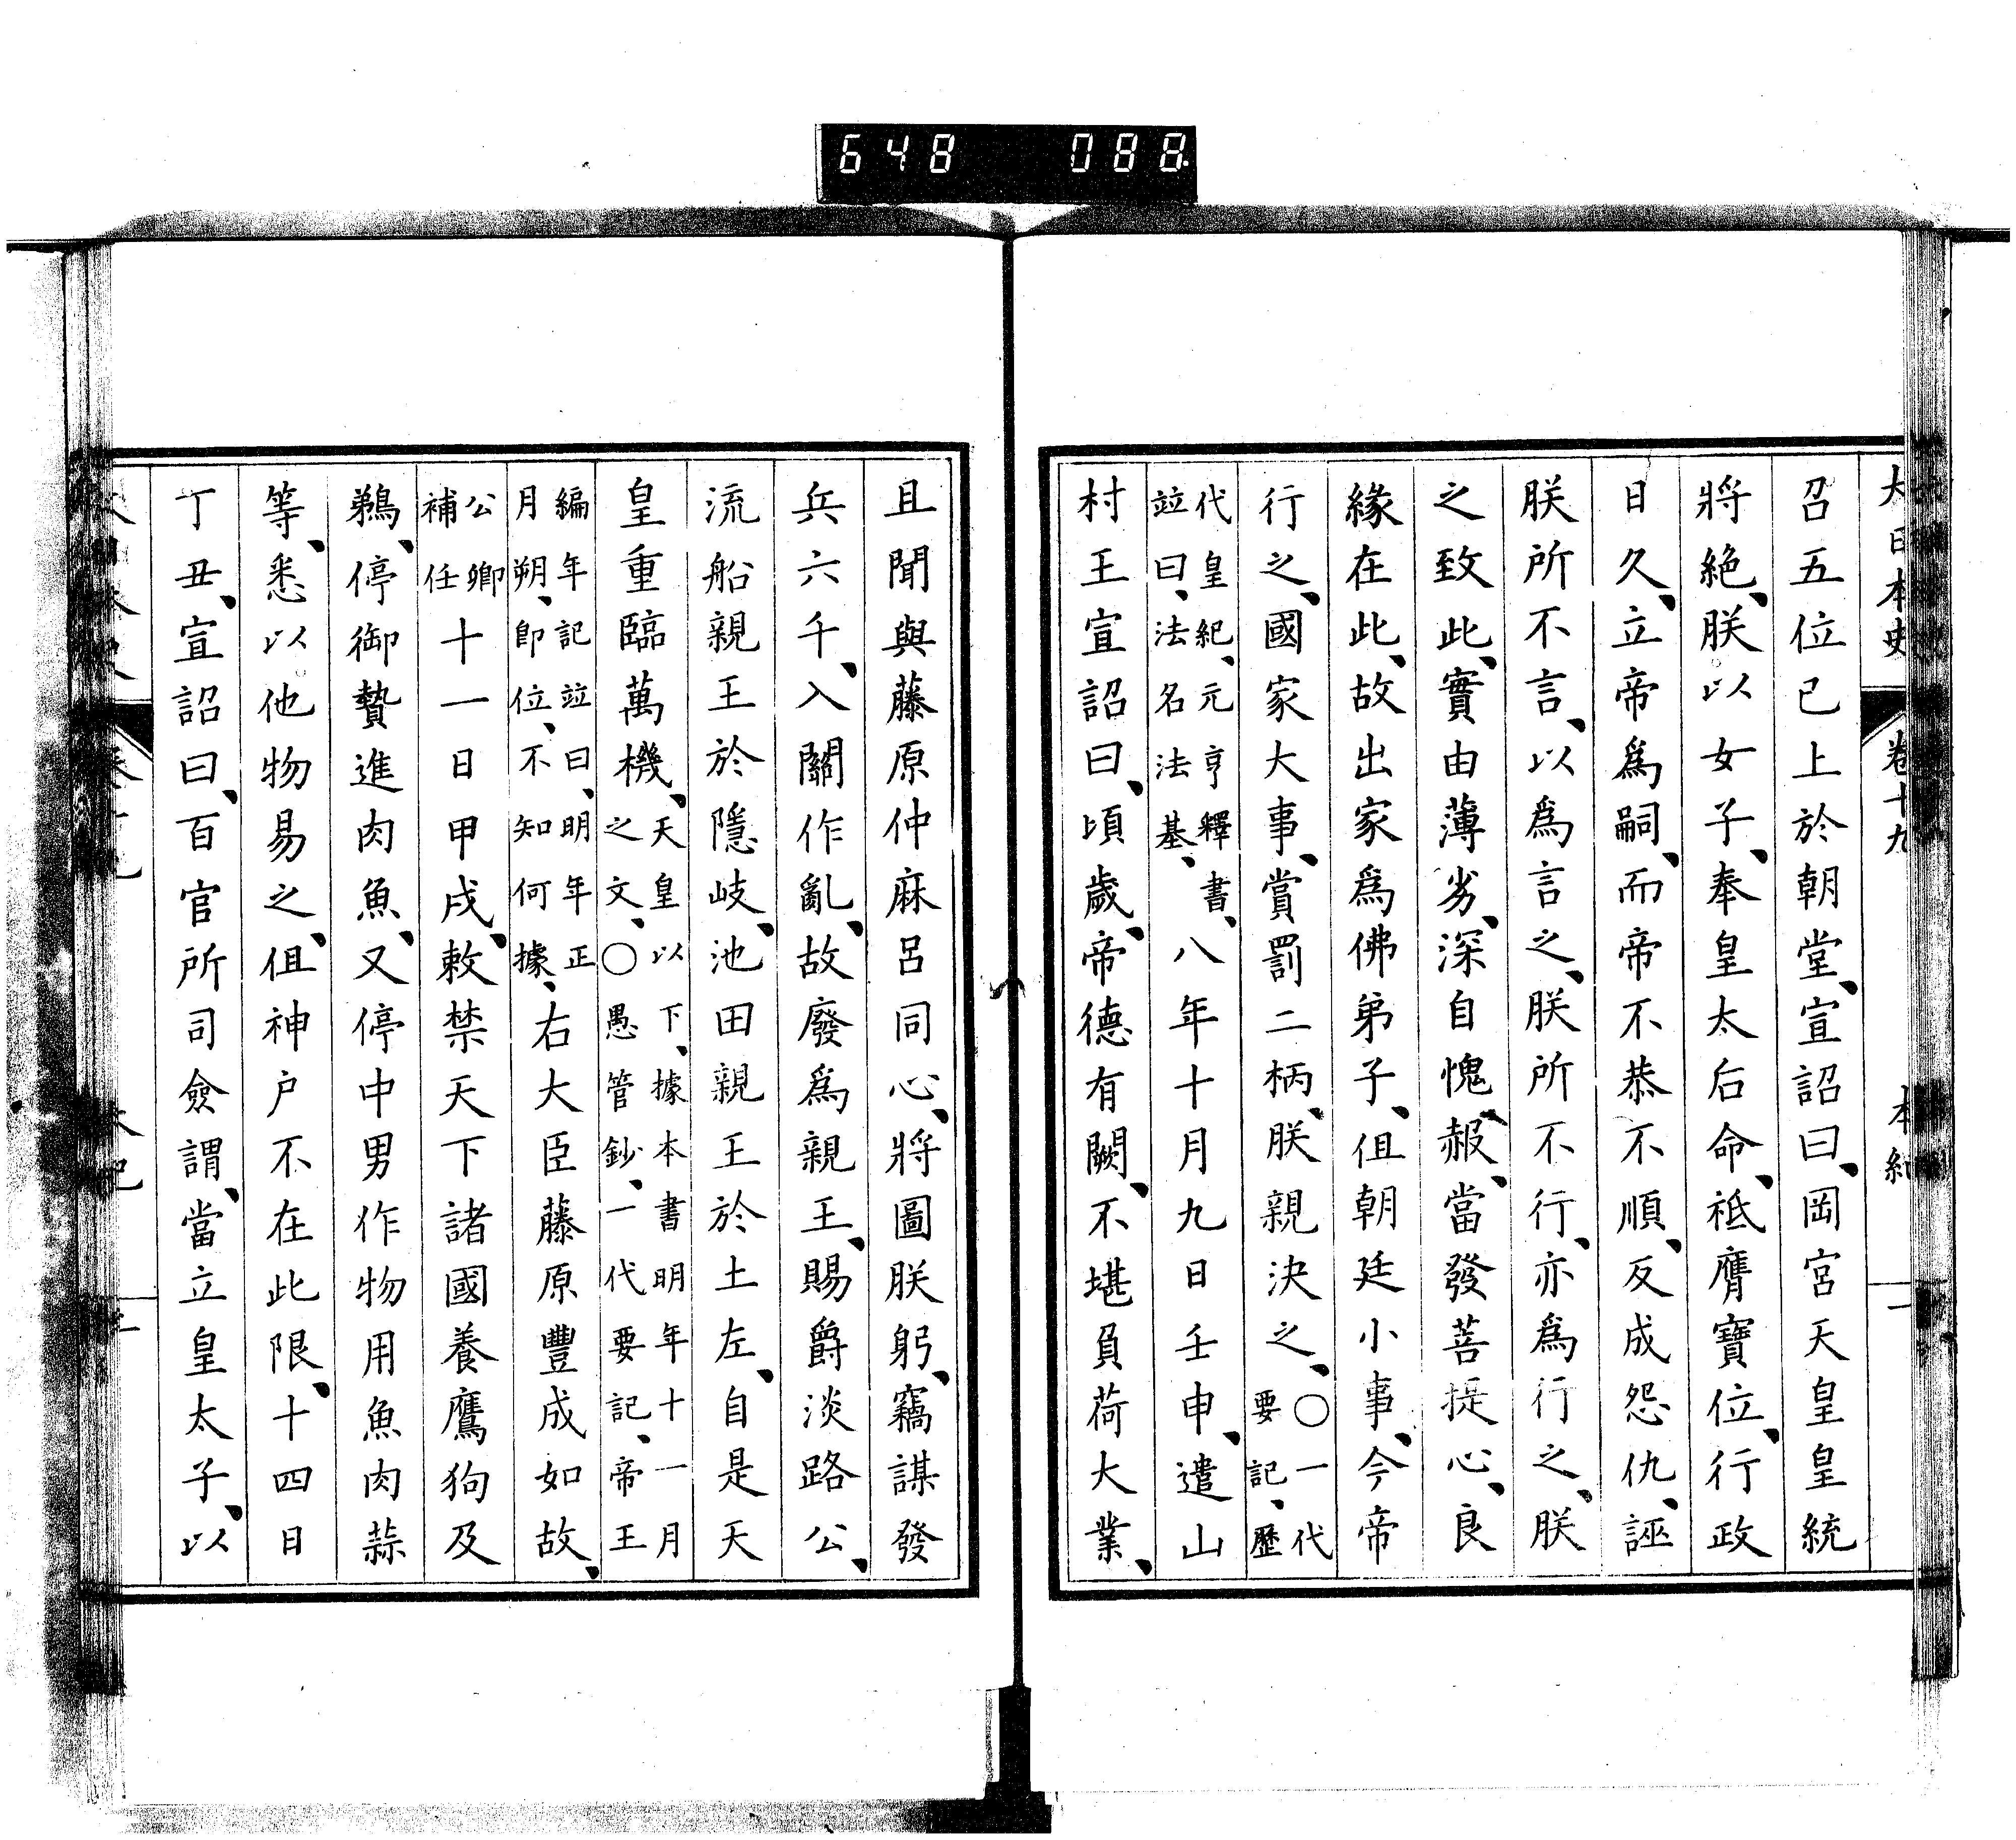 648 088
大日本史 卷十九 本紀 二
召五位已上於朝堂、宣詔曰、岡宮天皇皇統
將絶、朕以女子、奉皇太后命、祗膺寶位、行政
日久、立帝爲嗣、而帝不恭不順、反成怨仇、誣
朕所不言、以爲言之、朕所不行、亦爲行之、朕
之致此、實由薄劣、深自愧赧、當發菩提心、良
緣在此、故出家爲佛弟子、但朝廷小事、今帝
行之、國家大事、賞罰二柄、朕親決之、〇一代
要記、歷
代皇紀、元亨釋書、
竝曰、法名法基、八年十月九日壬申、遣山
村王宣詔曰、頃歲、帝德有闕、不堪負荷大業、
且聞與藤原仲麻呂同心、將圖朕躬、竊謀發
兵六千、入關作亂、故廢爲親王、賜爵淡路公、
流船親王於隱岐、池田親王於土左、自是天
皇重臨萬機、天皇以下、據本書明年十一月
之文、〇愚管鈔、一代要記、帝王
編年記竝曰、明年正
月朔、卽位、不知何據、右大臣藤原豐成如故、
公卿
補任十一日甲戌、敕禁天下諸國養鷹狗及
鵜、停御贄進肉魚、又停中男作物用魚肉蒜
等、悉以他物易之、但神戶不在此限、十四日
丁丑、宣詔曰、百官所司僉謂、當立皇太子、以